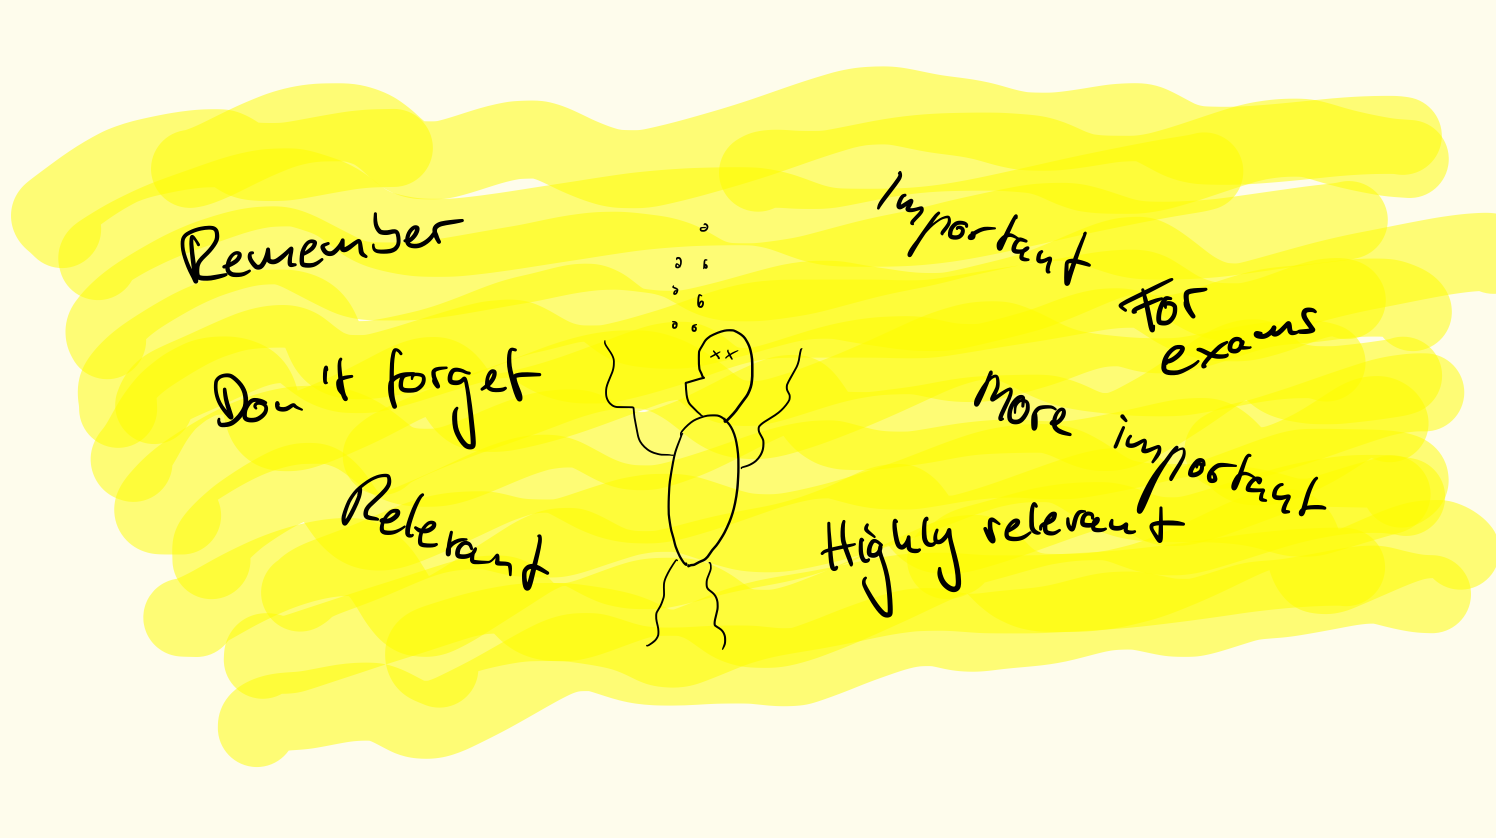 Remember
Don't forget
Relevant
Important
For
exams
More important
Highly relevant